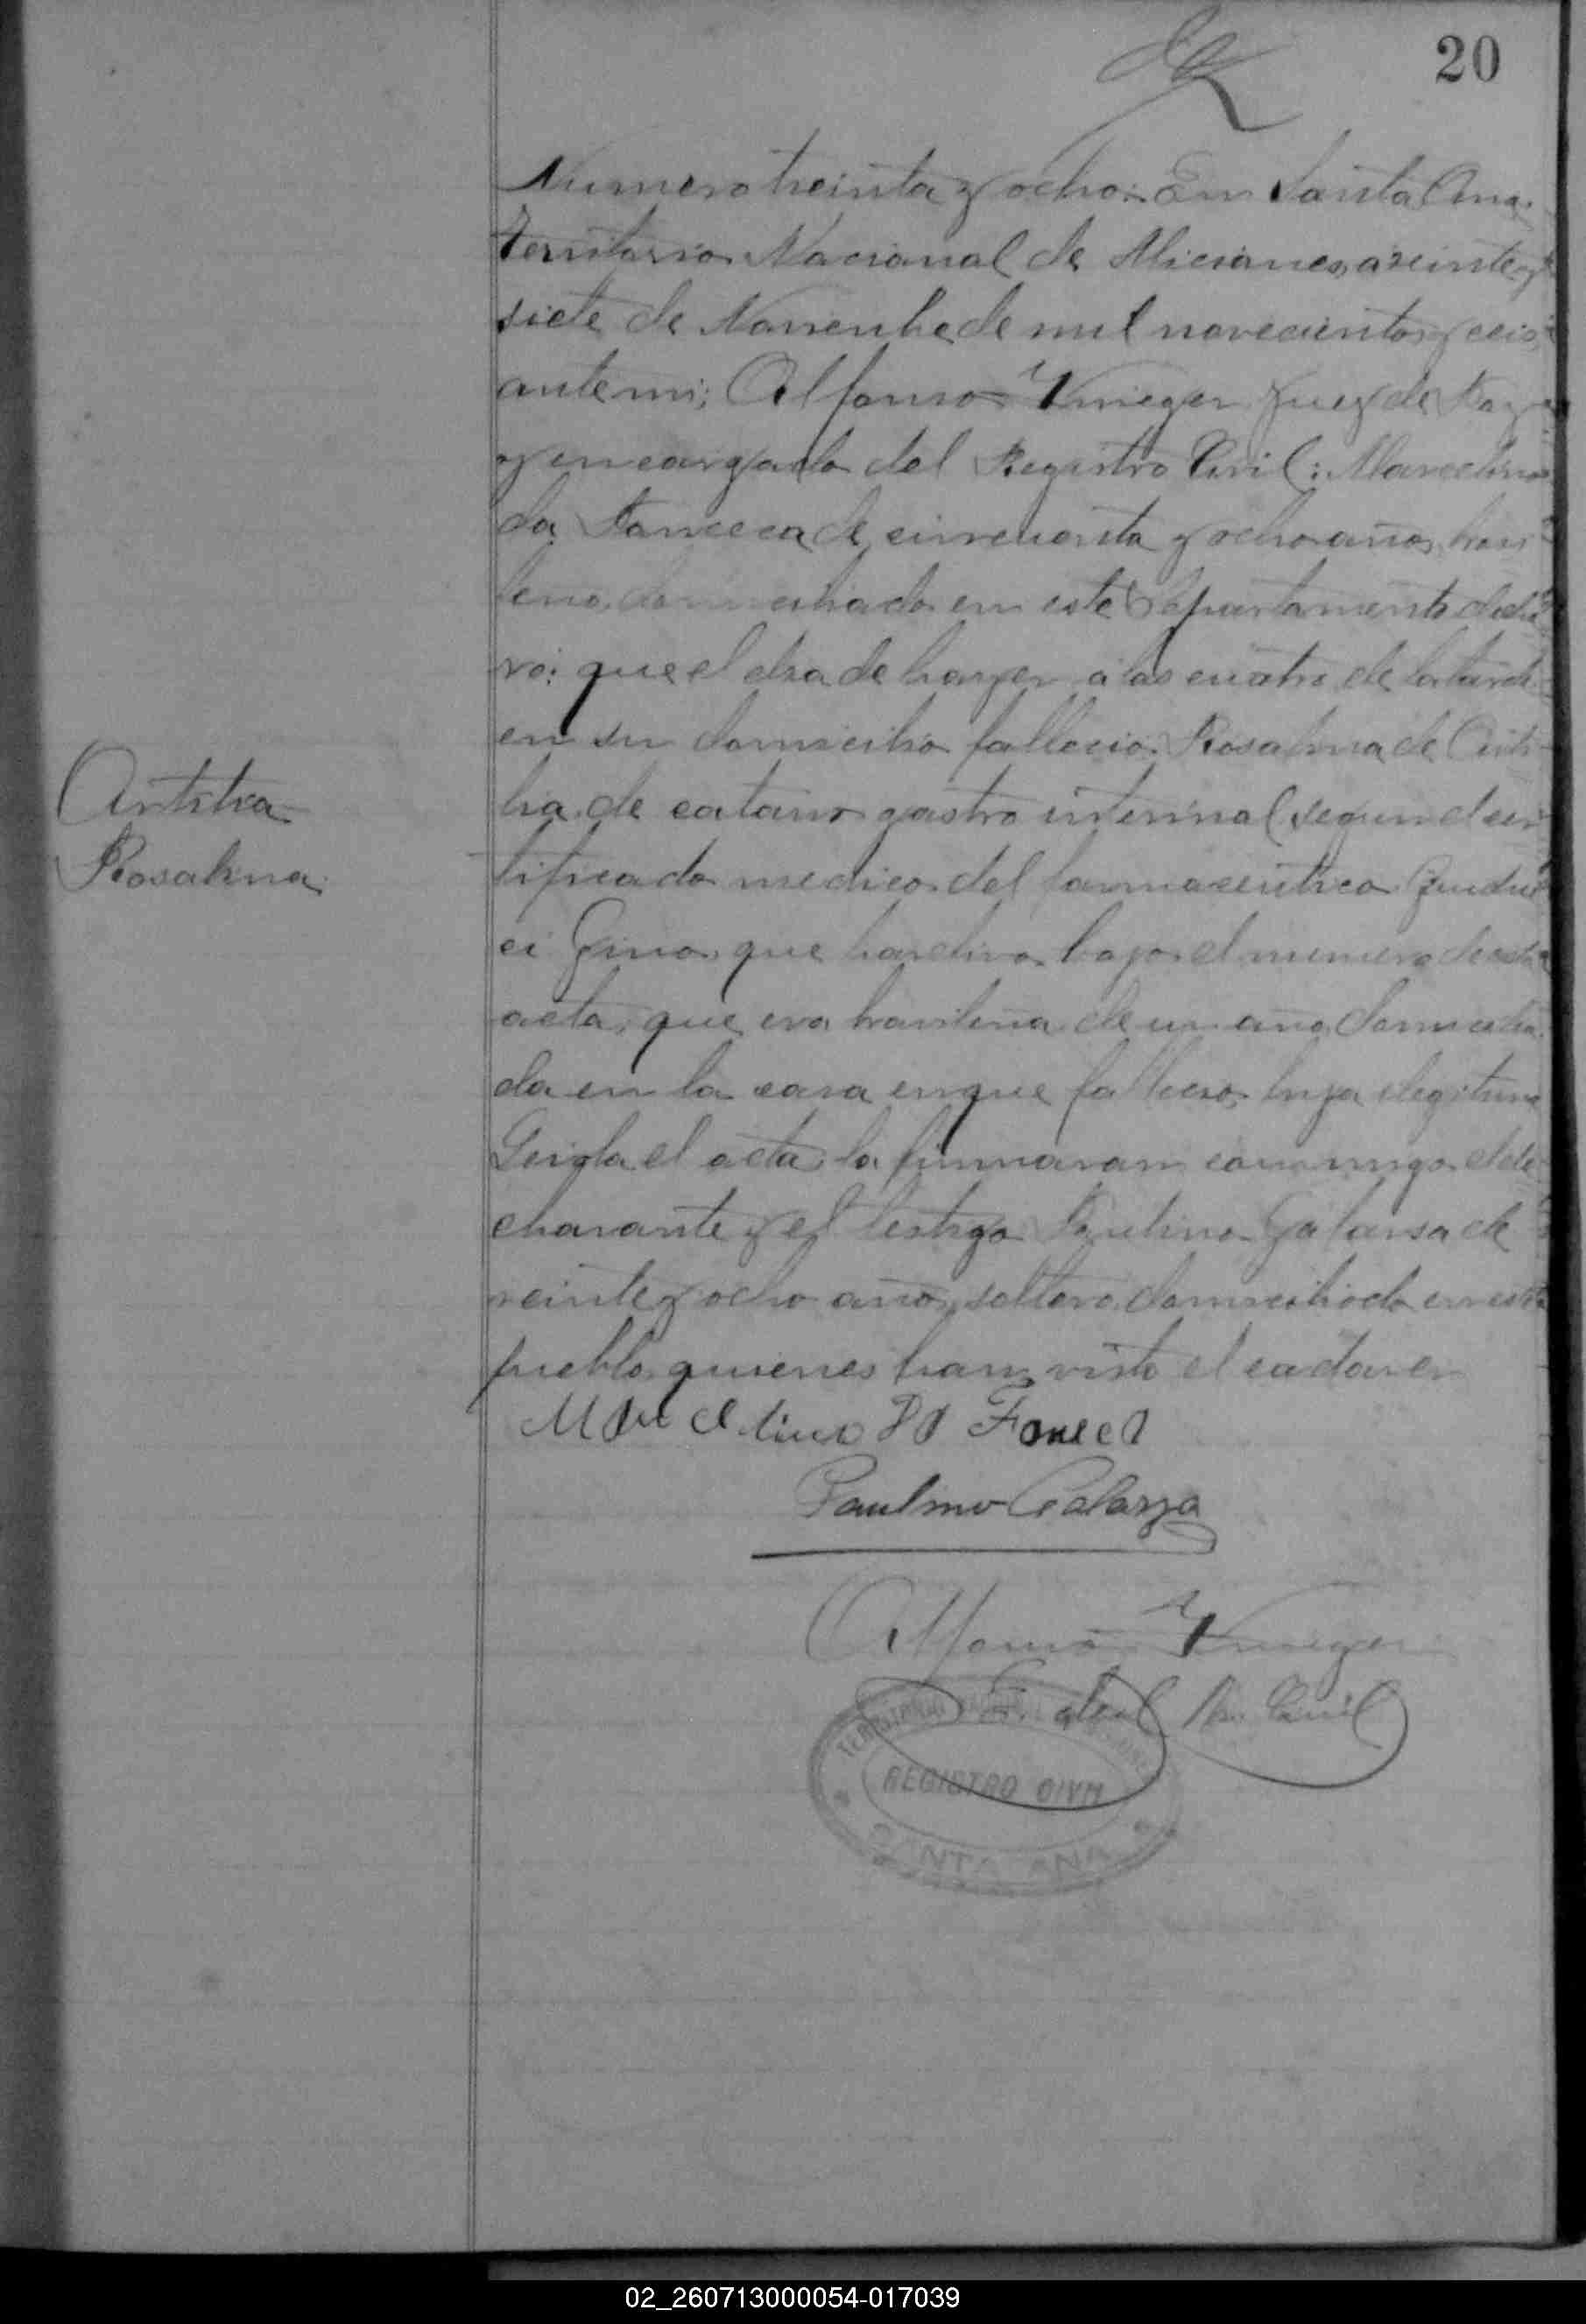 20
Numero treinta y ocho: En Santa Ana
Territorio Nacional de Misiones, a veinte y
siete de Noviembre de mil novecientos y seis
ante mi; Alfonso Krieger Juez de Paz
y encargado del Registro Civil: Marcelino
da Fonceca de cincuenta y ocho años, brasi
leno, domiciliado en este Departamento decla
ró: que el dia de hayer a las cuatro de la tarde
en su domicilio fallecio Rosalina de
de cataro gastro intestinal segun el cer
tificado medico del farmaceutico
ci Gino, que harchivo bajo el numero de esta
acta, que era brasileña de un año domicilia
da en la casa en que fallecio, hija ilegitima
Leida el acta la firmaron conmigo el de
clarante y el testigo Paulino Galarsa de
veinte y ocho años, soltero domiciliado en este
pueblo, quienes han visto el cadaver
Rosalina
Marcelino da Fonceca
Paulino Galarza
Alfonso Krieger
E. del R. Civil
REGISTRO CIVIL
SANTA ANA
02_260713000054-017039